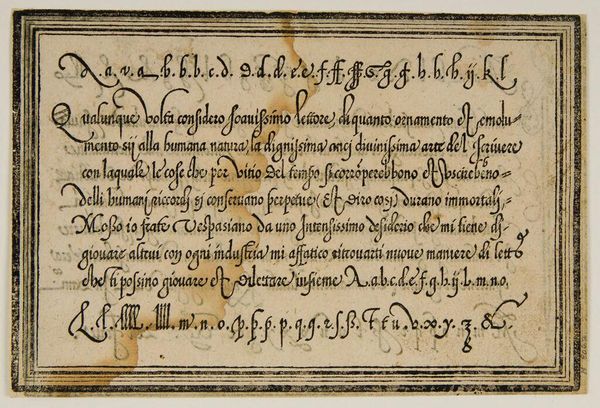 A . a . v . a . b . b . b . c . d . d . d . d . e . e . f . ff . ff . G . g . g . h . h . h . ij . k . l
Qualunque Volta considero soauissimo Lettore, di quanto ornamento et emolu=
mento sij alla humana natura, la dignissima anci diuinissima arte del scriuere
con laquale le cose che per Vitio del tempo si corrōperebbono et
delli humani riccordi si conseruano perpetue (et diro cosi) durano immortali,
Mosso io frate Vespasiano da uno Intensissimo desiderio che mi tiene di=
giouare altrui con ogni industria mi affatico ritrouarti nuoue maniere di lett
che ti possino giouare et dilettare insieme A.a.b.c.d.e.f.g.h.ij.l.m.n.o.
L . l . llll . llll . m . n . o . p . p . p . p . q . q . r . s . ß . T . t . u . v . x . y . z . &.